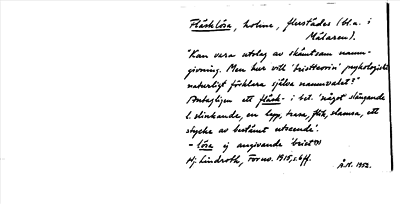 Fläsklösa, holme, flerstädes (bl.a. i
Mälaren).
"Kan vara utslag av skämtsam namn-
givning. Men hur vill 'bristteorin' psykologiskt
naturligt förklara själva namnvalet?"
Antagligen ett fläsk- i bet. 'något slängande
l. slinkande, en lapp, trasa, flik, slamsa, ett
stycke av bestämt utseende'.
- lösa ej angivande 'brist'
Hj. Lindroth, Fornv. 1915, s. 6 ff.
Å.N. 1952.